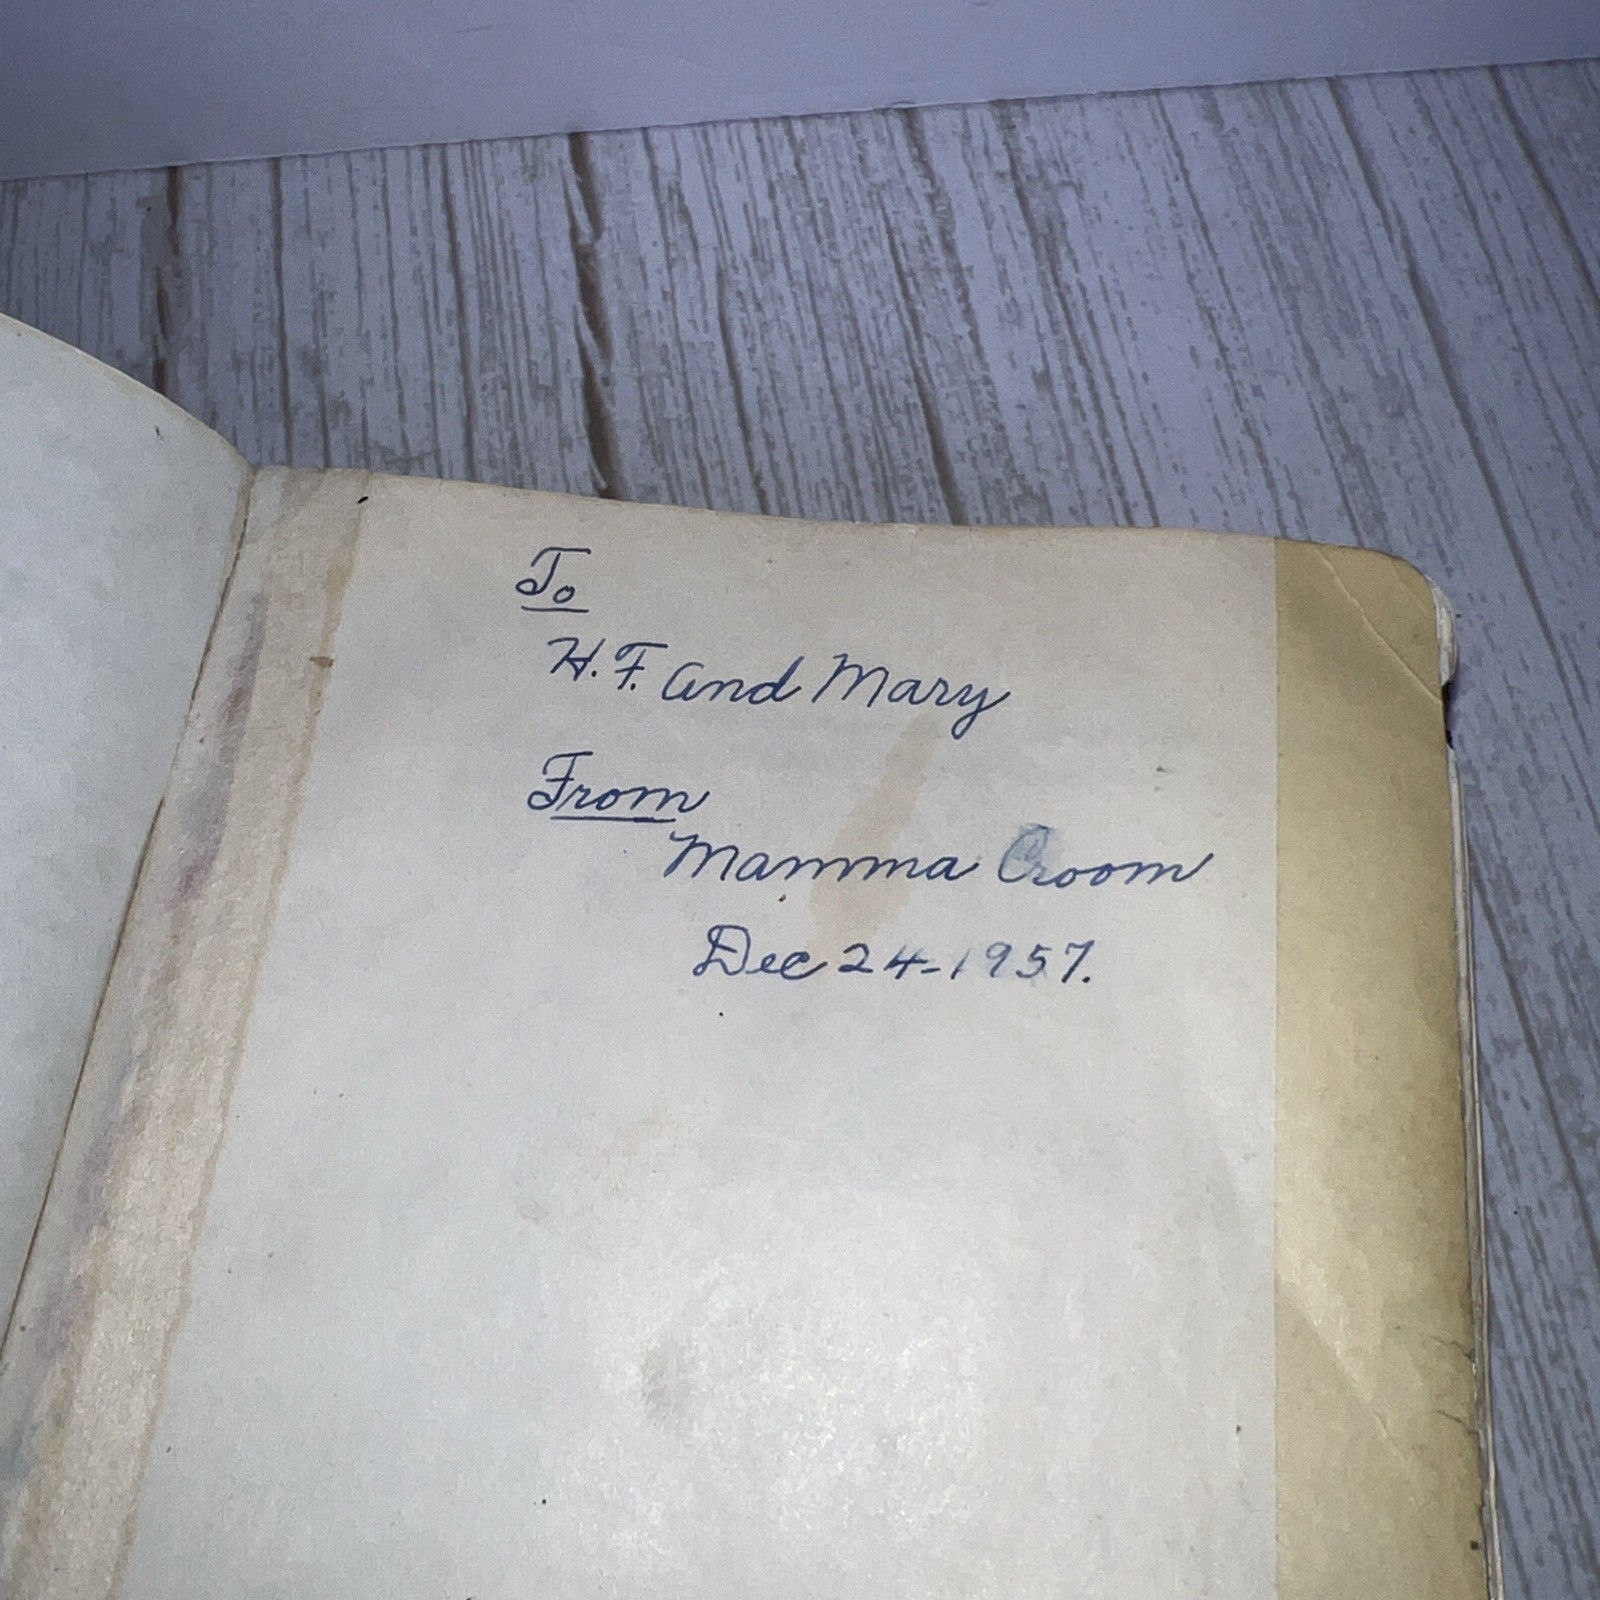 To
H. F. and Mary
From
Mamma Croom
Dec 24-1957.